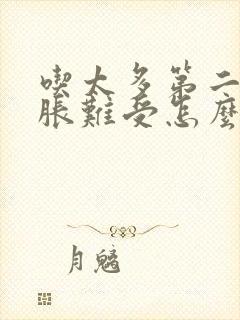 喫太多第二
脹難受怎麼
月魑